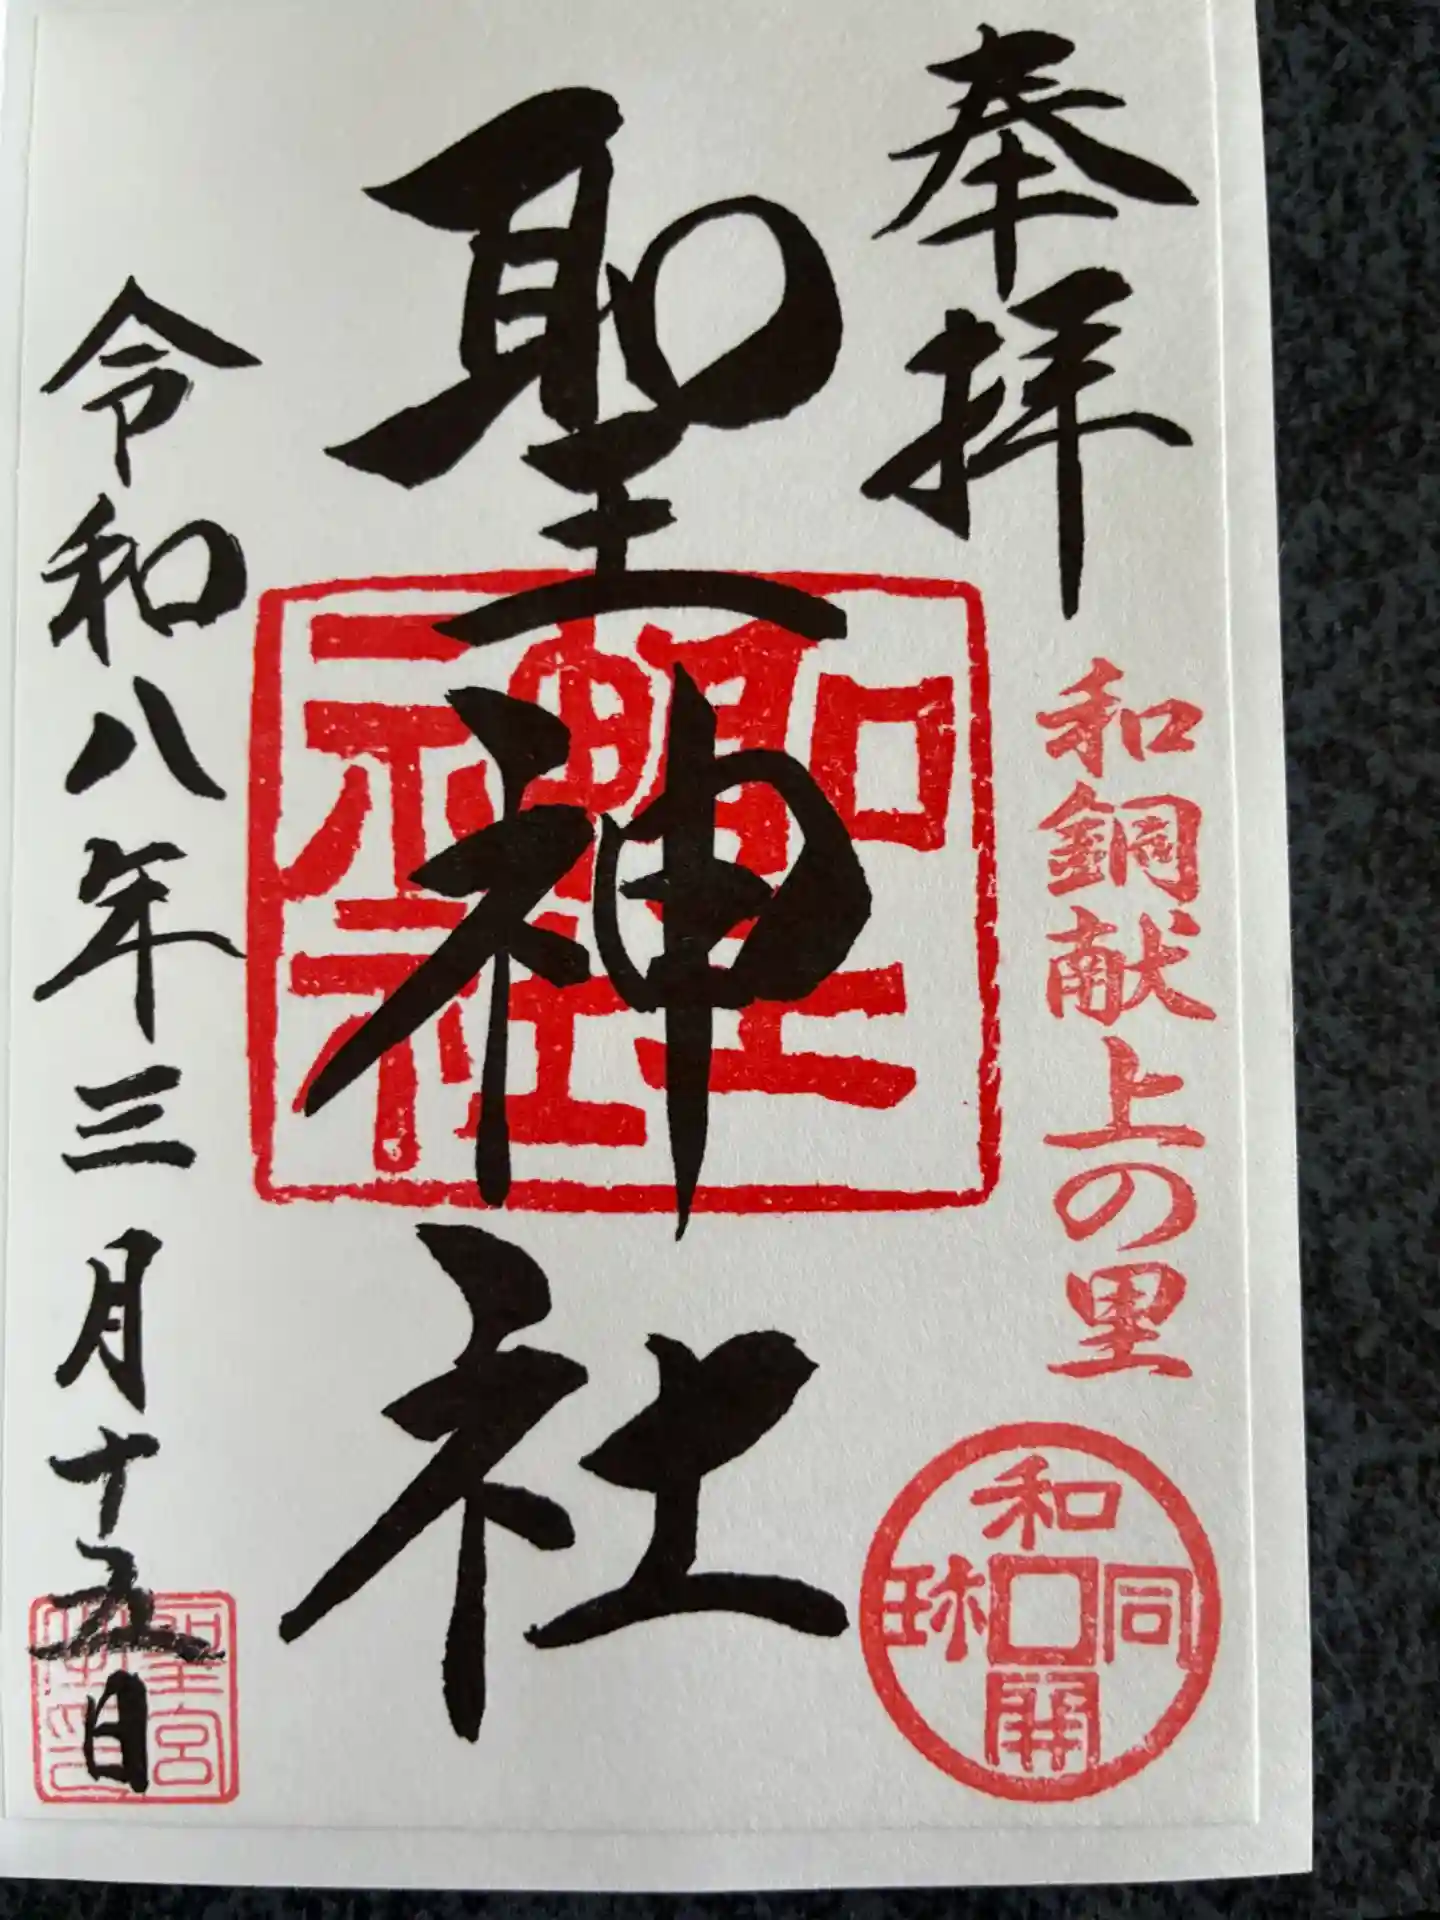 奉拝
和銅献上の里
和同開珎
聖神社
聖神社
令和八年三月十五日